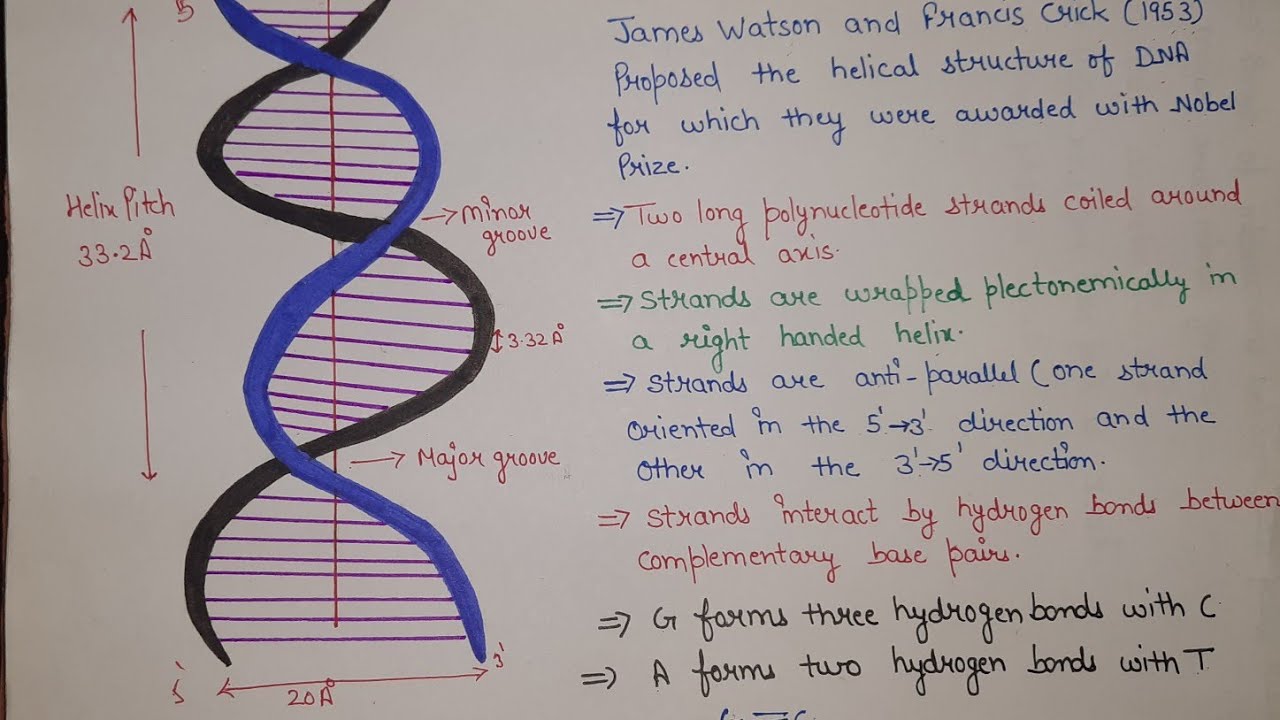 5
James Watson and Francis Crick (1953)
Proposed the helical structure of DNA
for which they were awarded with Nobel
Prize.
Helix Pitch
33.2Å
→ minor
groove
⇒ Two long polynucleotide strands coiled around
a central axis.
⇒ Strands are wrapped plectonemically in
a right handed helix.
3.32Å
⇒ Strands are anti-parallel (one strand
oriented in the 5'→3' direction and the
other in the 3'→5' direction.
→ Major groove
⇒ Strands interact by hydrogen bonds between
complementary base pairs.
⇒ G forms three hydrogen bonds with C
⇒ A forms two hydrogen bonds with T
5'
3'
20Å